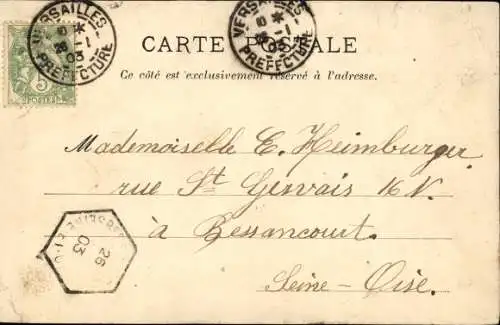 VERSAILLES
8 *
26 -1
03
PREFECTURE
VERSAILLES
8 *
26 -1
03
PREFECTURE
CARTE POSTALE
Ce côté est exclusivement réservé à l'adresse.
5
POSTES
Mademoiselle E. Heimburger
rue St Gervais 16 N.
à Bessancourt
Seine-Oise.
26
03